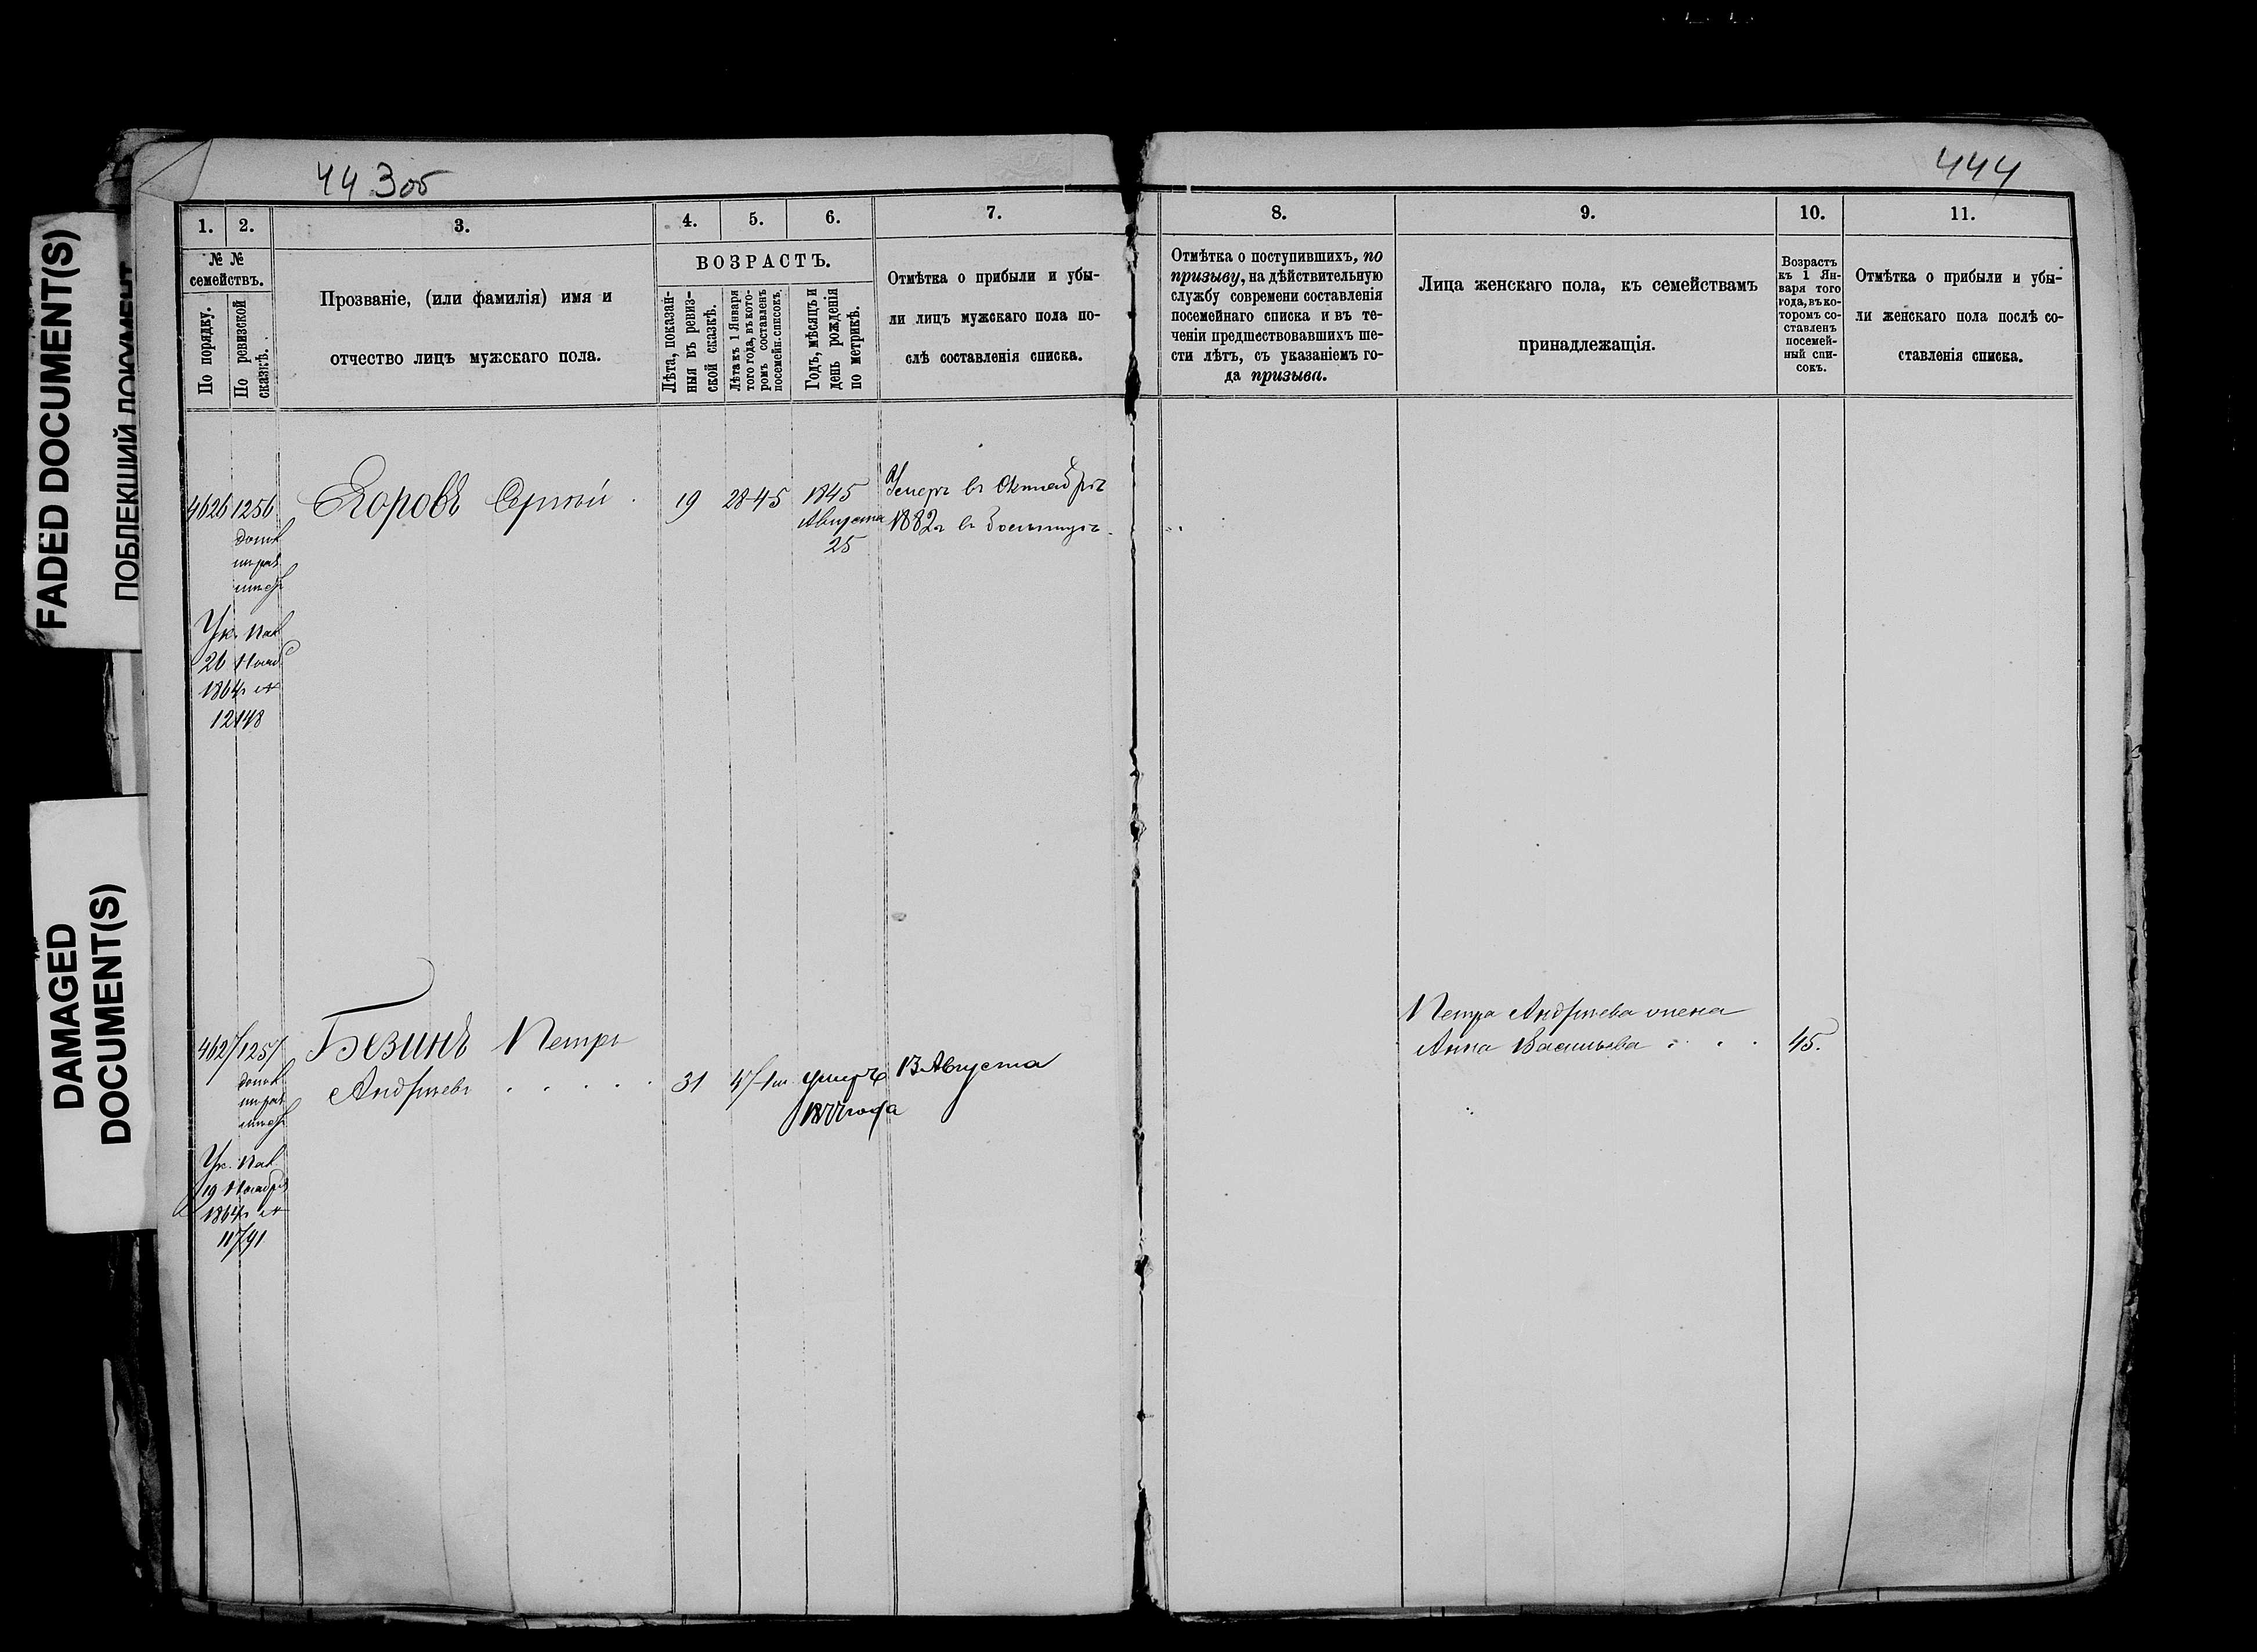 FADED DOCUMENT(S)
ПОБЛЕКШИЙ ДОКУМЕНТ
DAMAGED
DOCUMENT(S)
443об
444
1.
2.
3.
4.
5.
6.
7.
8.
9.
10.
11.
№ №
семействъ.
По порядку.
По ревизской
сказкѣ.
Прозваніе, (или фамилія) имя и
отчество лицъ мужскаго пола.
ВОЗРАСТЪ.
Лѣта, показан-
ныя въ ревиз-
ской сказкѣ.
Лѣта къ 1 Января
того года, въ кото-
ромъ составленъ
посемейн. списокъ.
Годъ, мѣсяцъ и
день рожденія
по метрикѣ.
Отмѣтка о прибыли и убы-
ли лицъ мужскаго пола по-
слѣ составленія списка.
Отмѣтка о поступившихъ, по
призыву, на дѣйствительную
службу современи составленія
посемейнаго списка и въ те-
ченіи предшествовавшихъ ше-
сти лѣтъ, съ указаніемъ го-
да призыва.
Лица женскаго пола, къ семействамъ
принадлежащія.
Возрастъ
къ 1 Ян-
варя того
года, въ ко-
торомъ со-
ставленъ
посемей-
ный спи-
сокъ.
Отмѣтка о прибыли и убы-
ли женскаго пола послѣ со-
ставленія списка.
4626 1256 Егоровъ Сергѣй 19 28-45 1845
Августа
25
Умеръ въ Октябрѣ
1882г въ
Ук. Пал
26 Нояб
1864г №
12148
4627 1257 Безинъ Петръ
Андрѣевъ 31 умеръ 13 Августа
1877 года
Ук. Пал
19 Ноября
1864г №
11791
Петра Андрѣева жена
Анна Васильева 45.